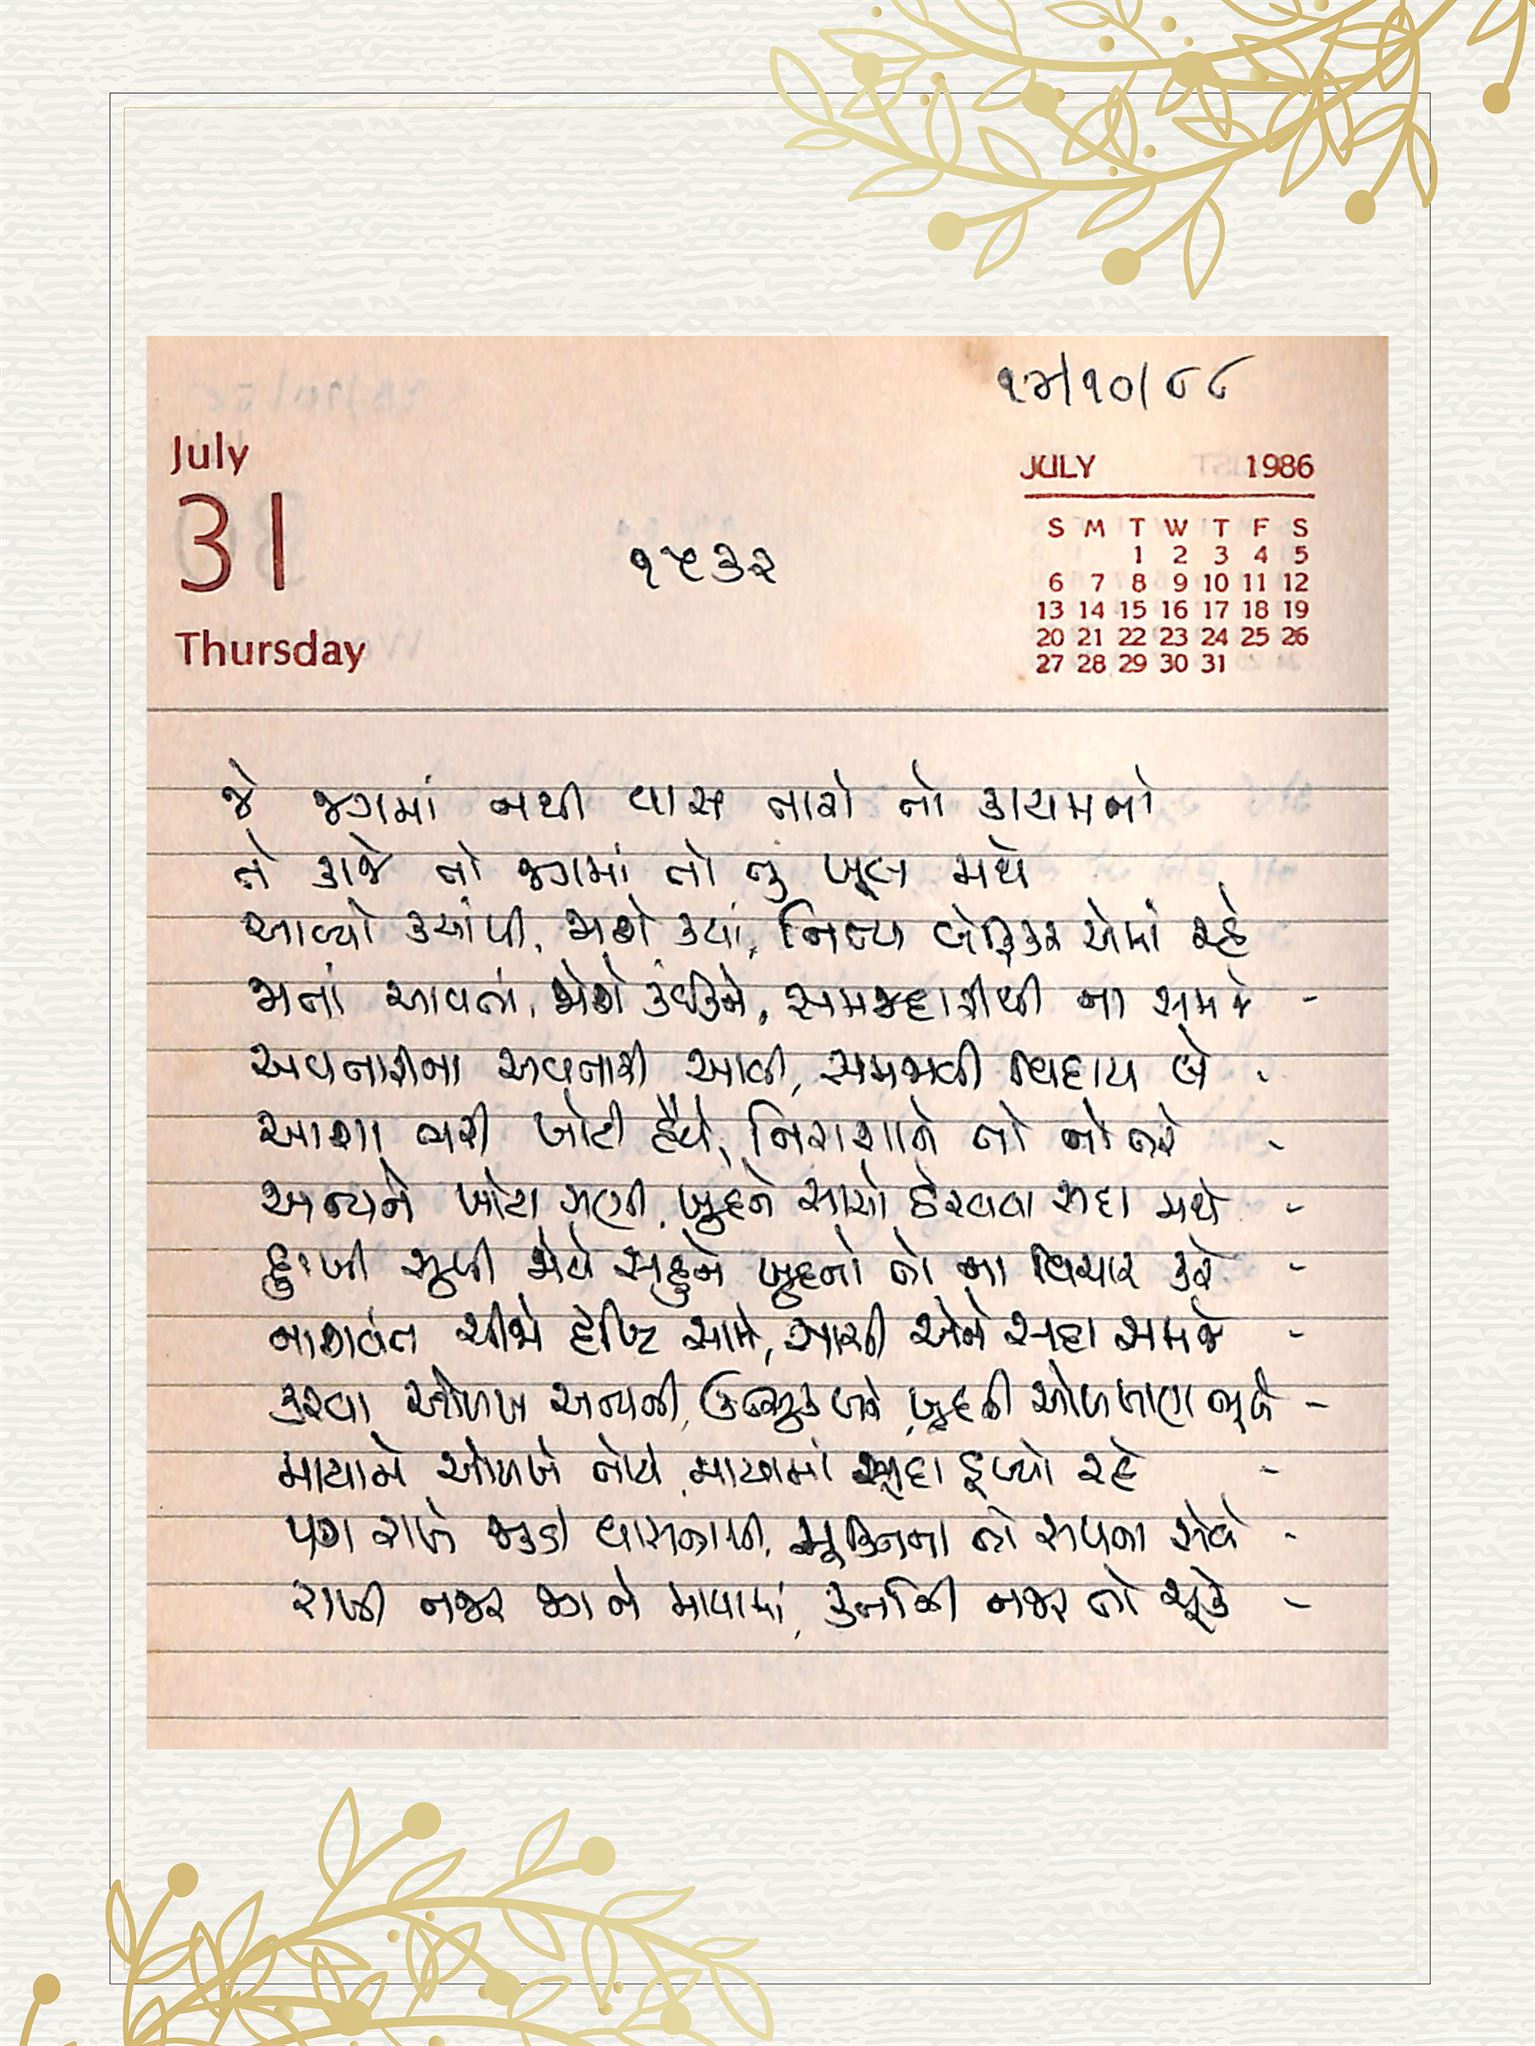 ૧૪/૧૦/૮૮
July
31
Thursday
૧૫૩૨
JULY 1986
S M T W T F S
1 2 3 4 5
6 7 8 9 10 11 12
13 14 15 16 17 18 19
20 21 22 23 24 25 26
27 28 29 30 31
જે જગમાં નથી વાસ તારો તો કાયમનો
તે કાજે તો જગમાં તો તું ખૂબ મથે
આવ્યો ક્યાંથી, જાશે ક્યાં, નિત્ય બેફિકર એમાં રહે
જાતાં આવતાં, જોશે કંઈકને, સમજદારીથી ના સમજે -
અવતારીના અવતારી આવી, સમજાવી વિદાય લે -
આશા ભરી ખોટી હૈયે, નિરાશાને તો નોતરે -
અન્યને ખોટા ગણી, ખુદને સાચો ઠેરવવા સદા મથે -
દુઃખી સુખી જોયે સહુને ખુદનો તો ના વિચાર કરે -
નાશવંત ચીજો દૃષ્ટિ સામે, સાચી એને સદા સમજે -
કરવા ઓળખ અન્યની, ઉત્સુક બને, ખુદની ઓળખાણ ભૂલે -
માયાને ઓળખે તોયે, માયામાં સદા ડૂબ્યો રહે -
પગ રાખે જકડી વાસનાથી, મુક્તિના તો સપના સેવે -
રાખી નજર જગ ને માયામાં, કર્તાની નજર તો ચૂકે -